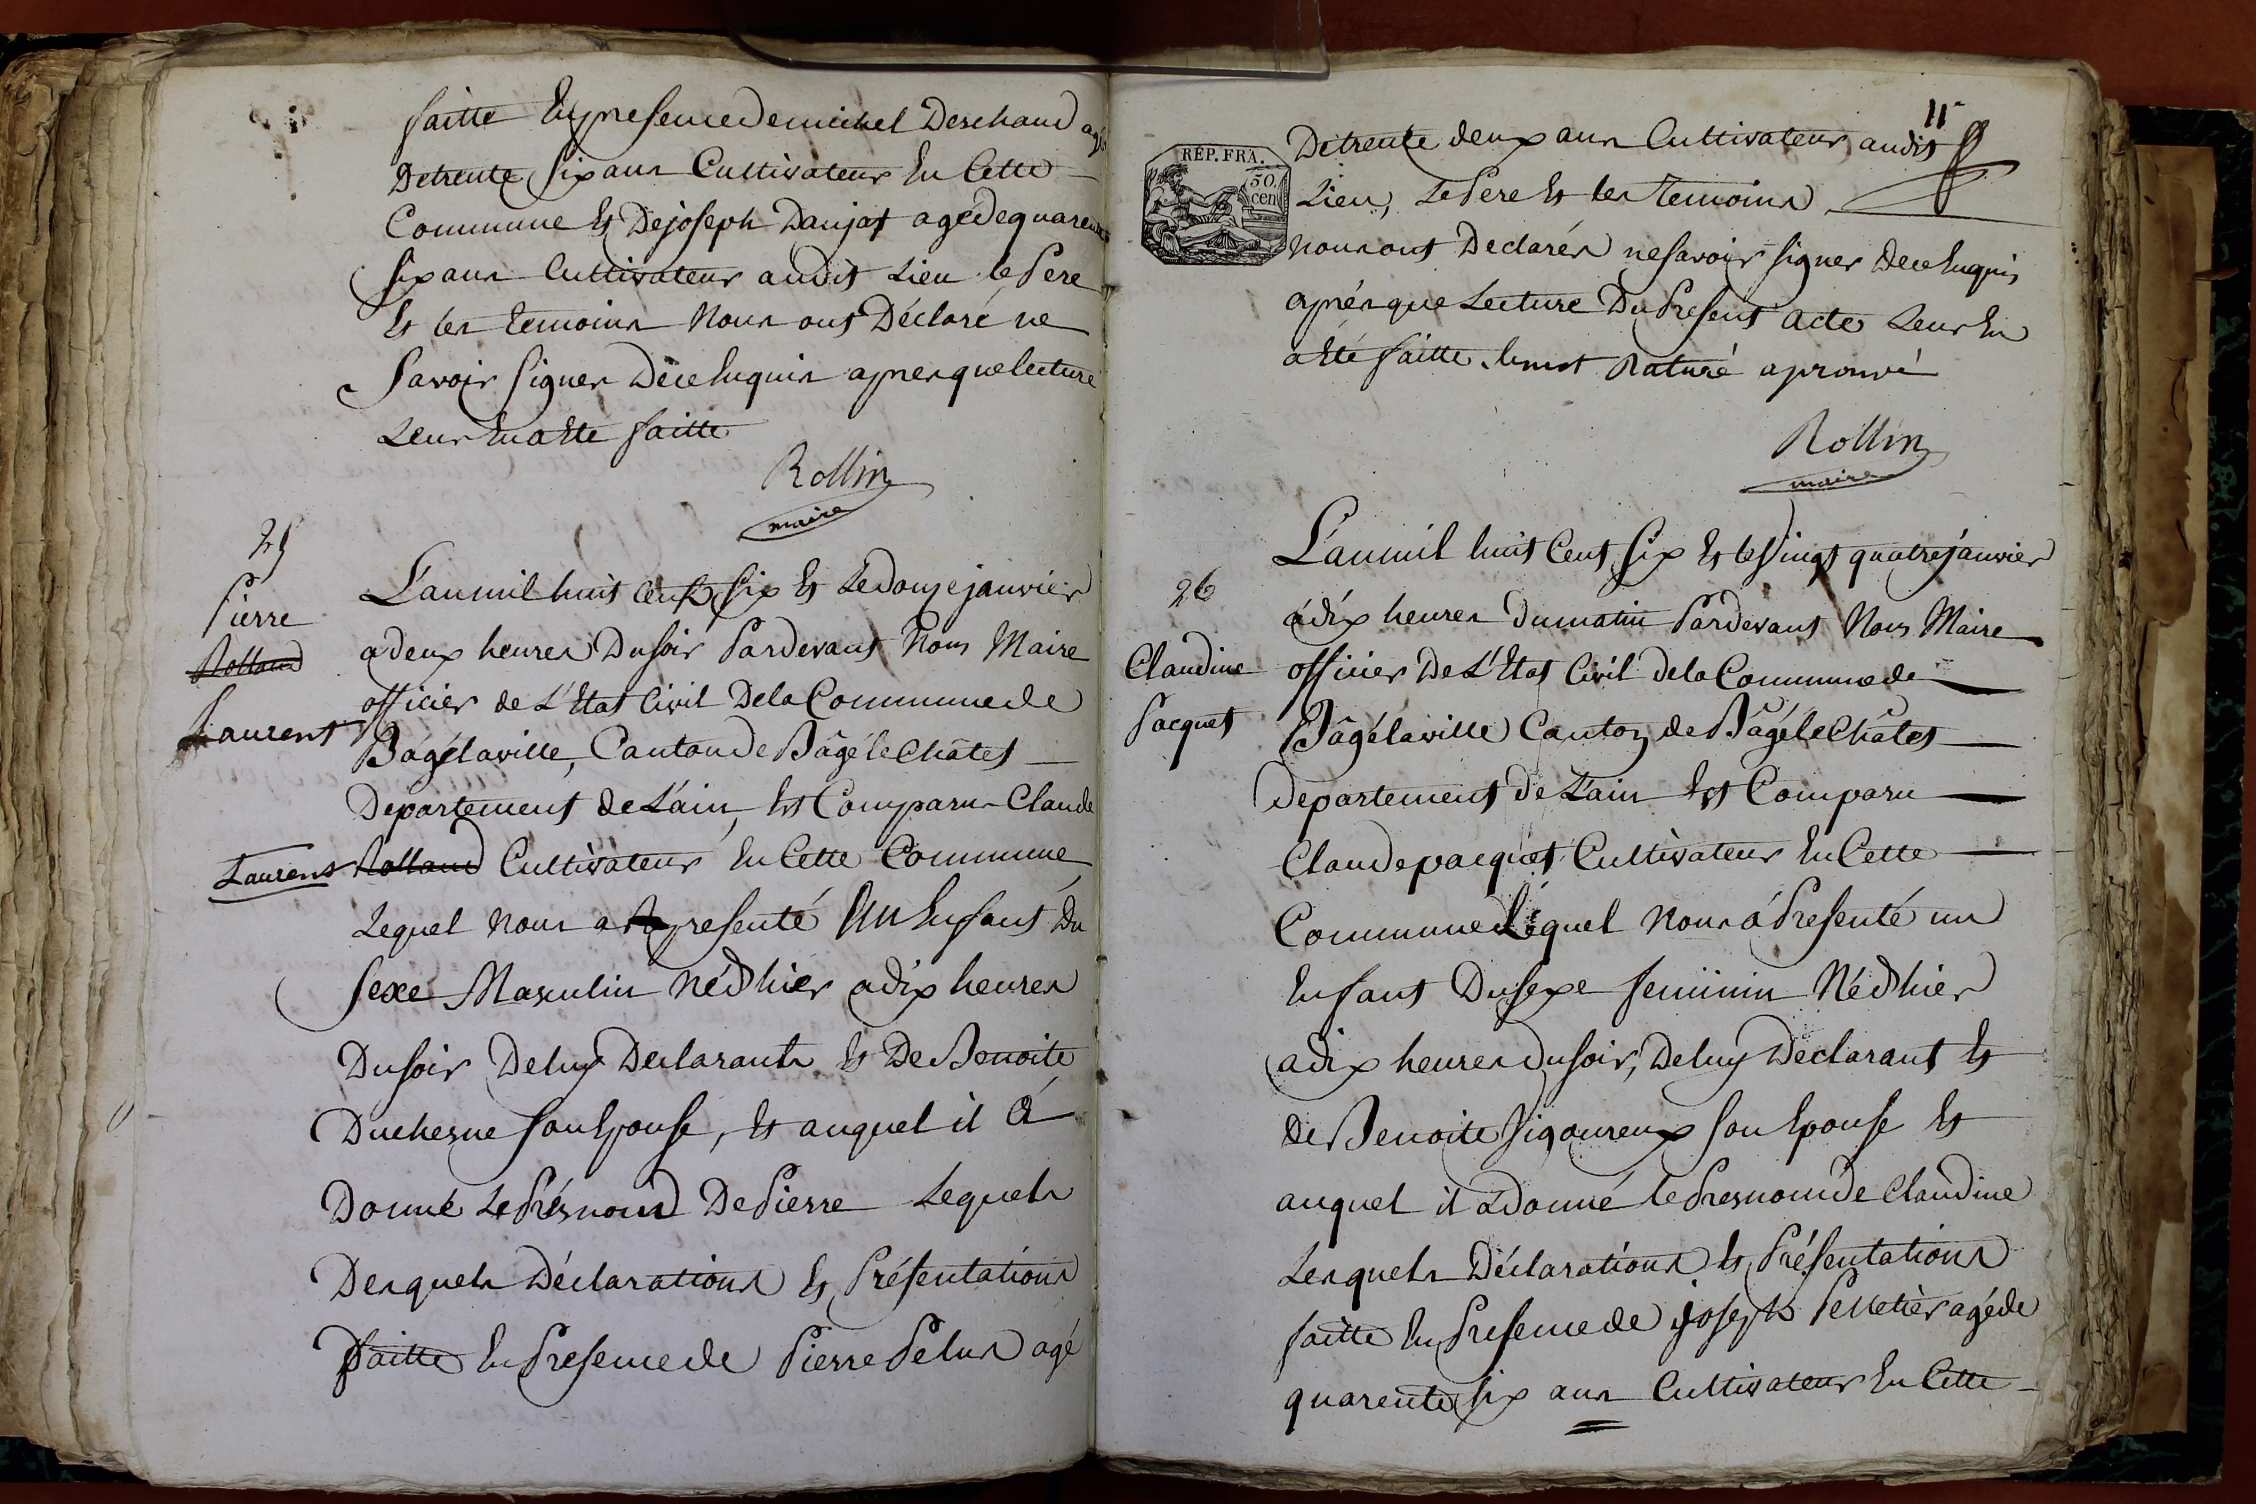 faitte En presence de michel Deschaud agé
De trente Six ans Cultivateur En Cette
Commune Et De joseph Danjat agé de quarente
Six ans Cultivateur audit Lieu le Pere
Et les temoins Nous ont Déclaré ne
Savoir Signer De ce Enquis apres que lecture
Leur En a Eté faitte
Rollin
maire
25
Pierre
Rolland
Laurent
L'an mil huit Cent Six Et Le douze janvier
a deux heures Du Soir Pardevant Nous Maire
officier de L'Etat Civil De la Commune de
Bagélaville, Canton de Bâgé le Châtel
Departement de L'ain, Est Comparu Claude
Laurent Rolland Cultivateur En Cette Commune
Lequel nous a presenté Un Enfant Du
Sexe Masculin Né d'hier a dix heures
Du Soir De luy Declarant Et De Benoite
Duchesne Son Epouse, Et auquel il A
Donné Le Présnom De Pierre Lequels
Desquels Déclarations Et Présentations
faitte En Presence de Pierre Pelus agé
11
REP. FRA.
50.
cen
De trente deux ans Cultivateur audit
Lieu, Le Pere Et les temoins
nous ont Declarés ne Savoir Signer de ce Enquis
aprés que Lecture Du Present acte Leur En
a Eté faitte. le mot Raturé aprouvé
Rollin
maire
26
Claudine
Pacquet
L'an mil huit Cent Six Et le Vingt quatre janvier
á dix heures du matin Pardevant Nous Maire
officier De L'Etat Civil de la Commune de
Bâgélaville Canton de Bâgé le Châtel
Departement de L'ain Est Comparu
Claude pacquet Cultivateur En Cette
Commune Léquel Nous á Presenté un
Enfant Du Sexe feminin Né d'hier
a dix heures du Soir, De luy Declarant Et
de Benoite Vigoureux Son Epouse Et
auquel il a donné le Presnom de Claudine
Lesquels Déclarations Et Présentations
faitte En Presence de joseph Pelletier agé de
quarente Six ans Cultivateur En Cette